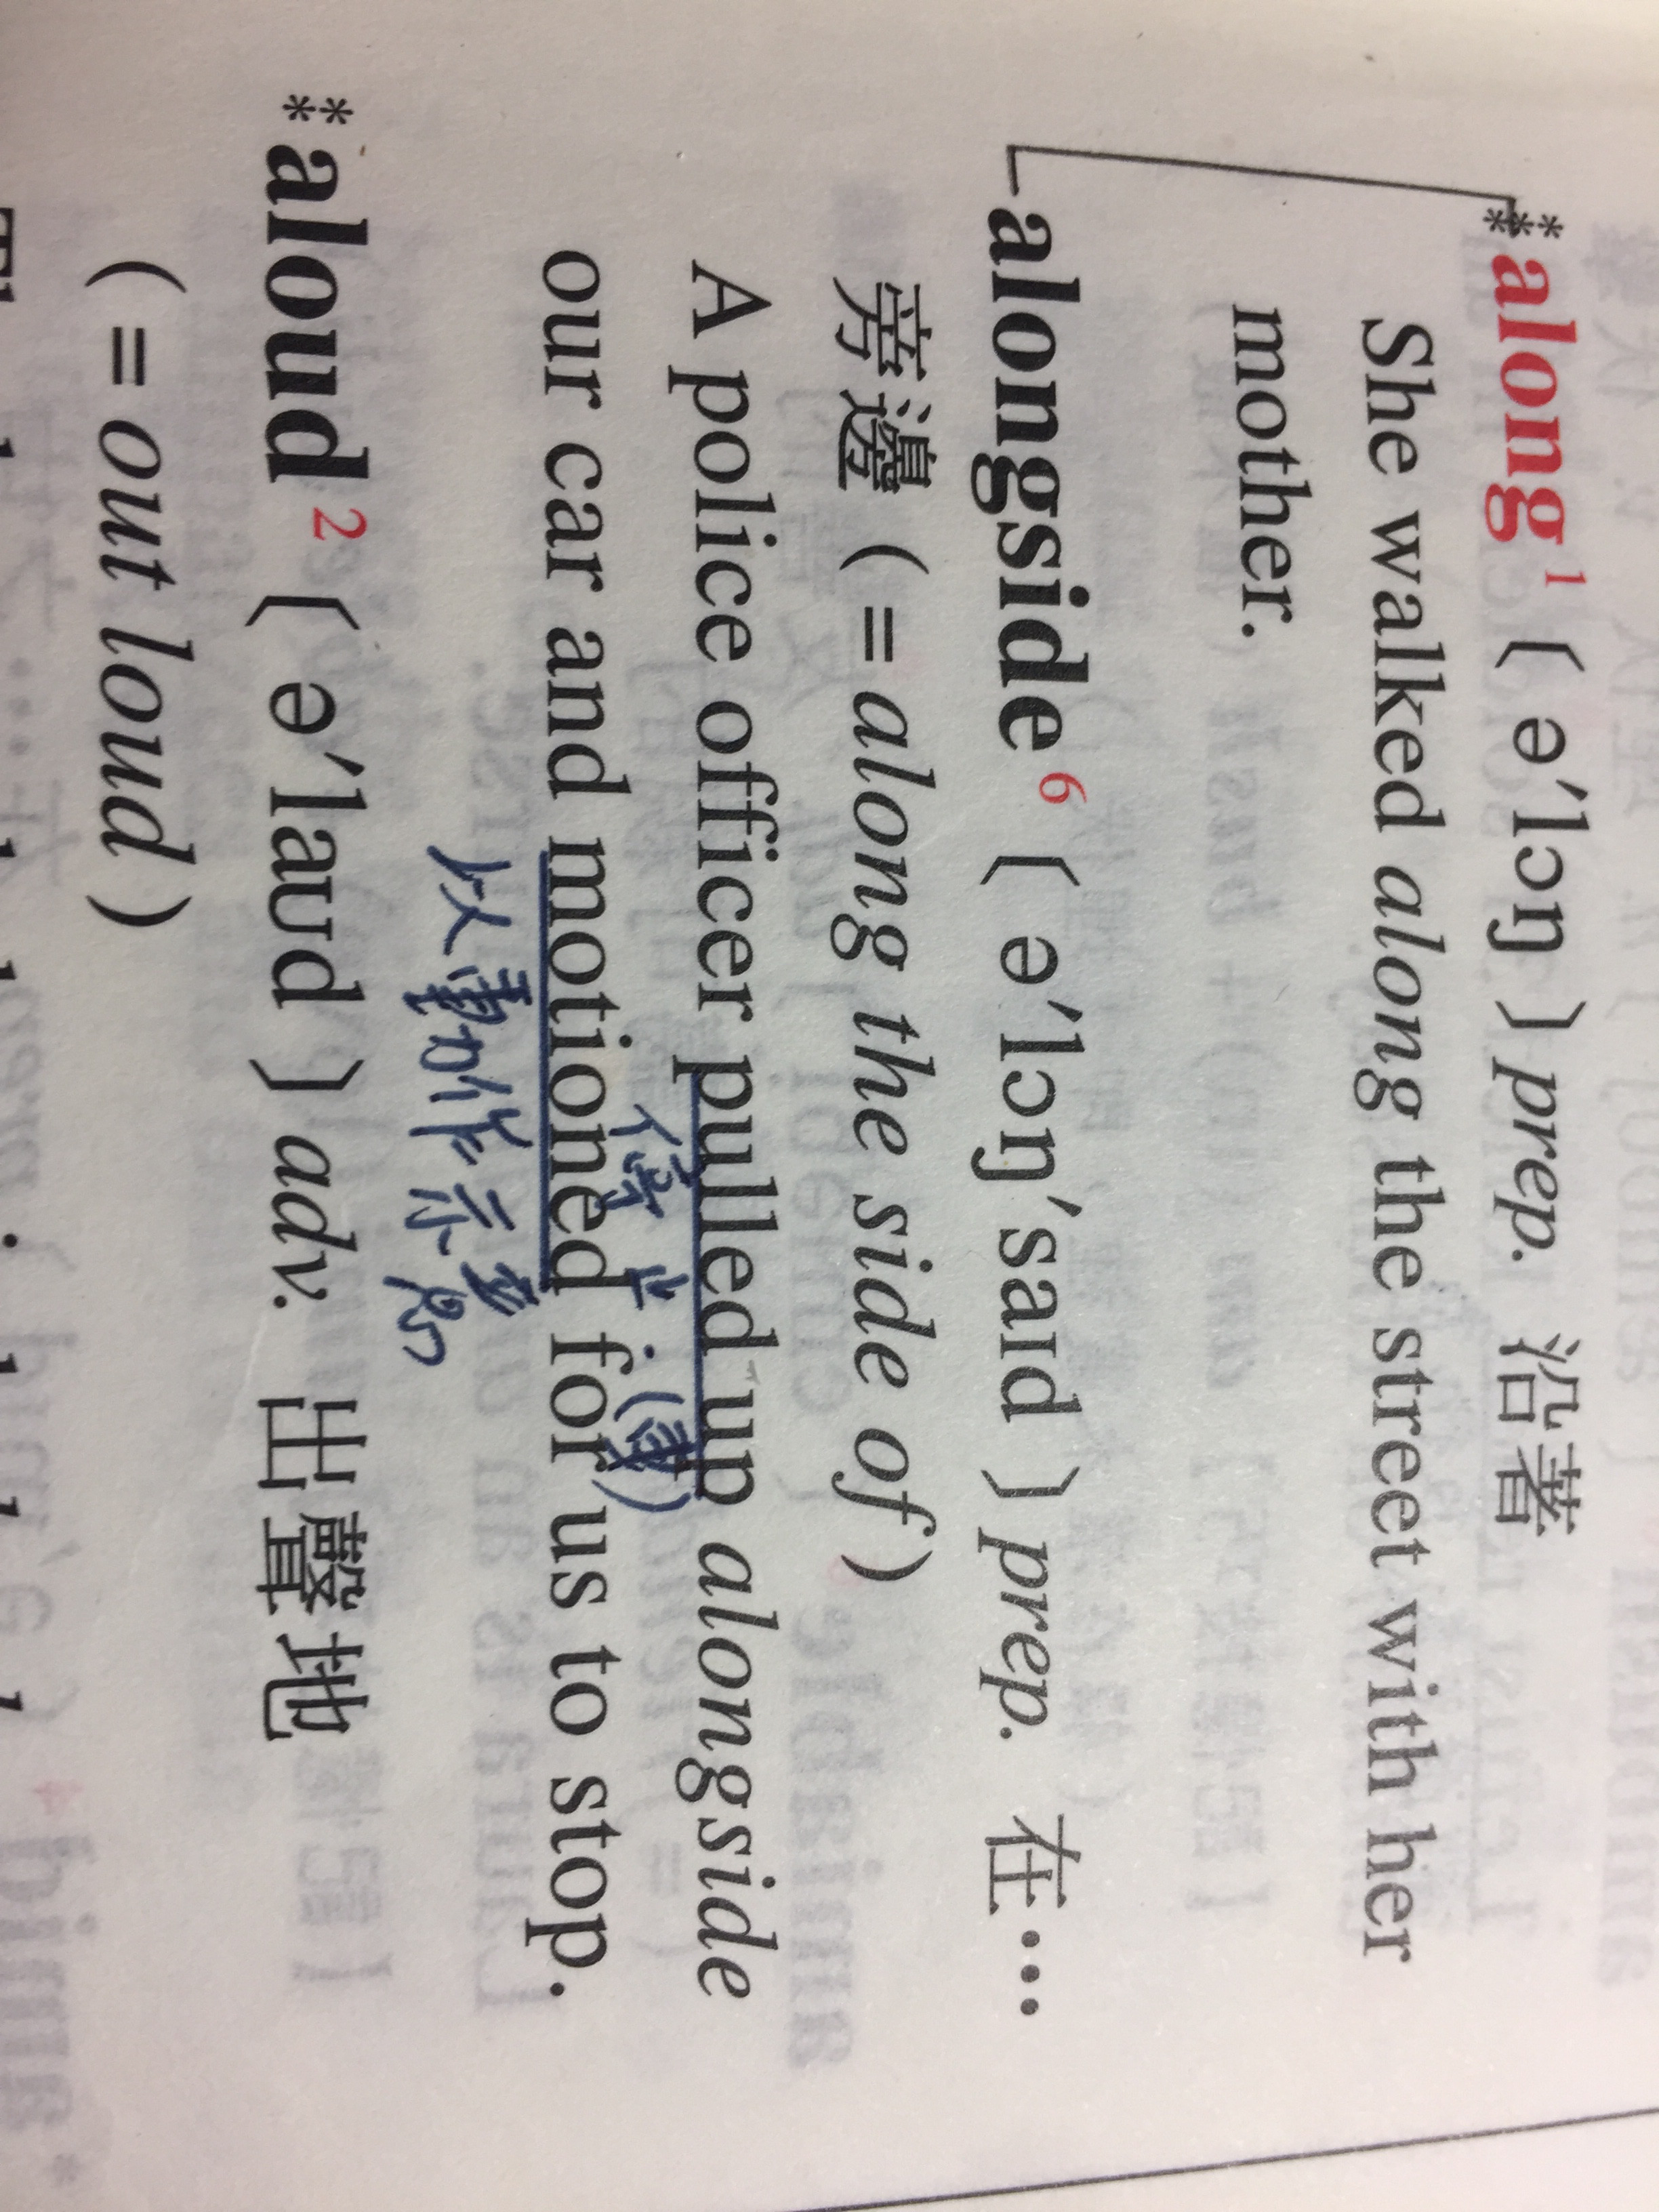 **along¹ [ə′lɔŋ] prep. 沿著
She walked along the street with her
mother.
alongside⁶ [ə′lɔŋ′saɪd] prep. 在…
旁邊 (= along the side of)
A police officer pulled up alongside
停止.(車)
our car and motioned for us to stop.
以動作示意
**aloud² [ə′laʊd] adv. 出聲地
(= out loud)